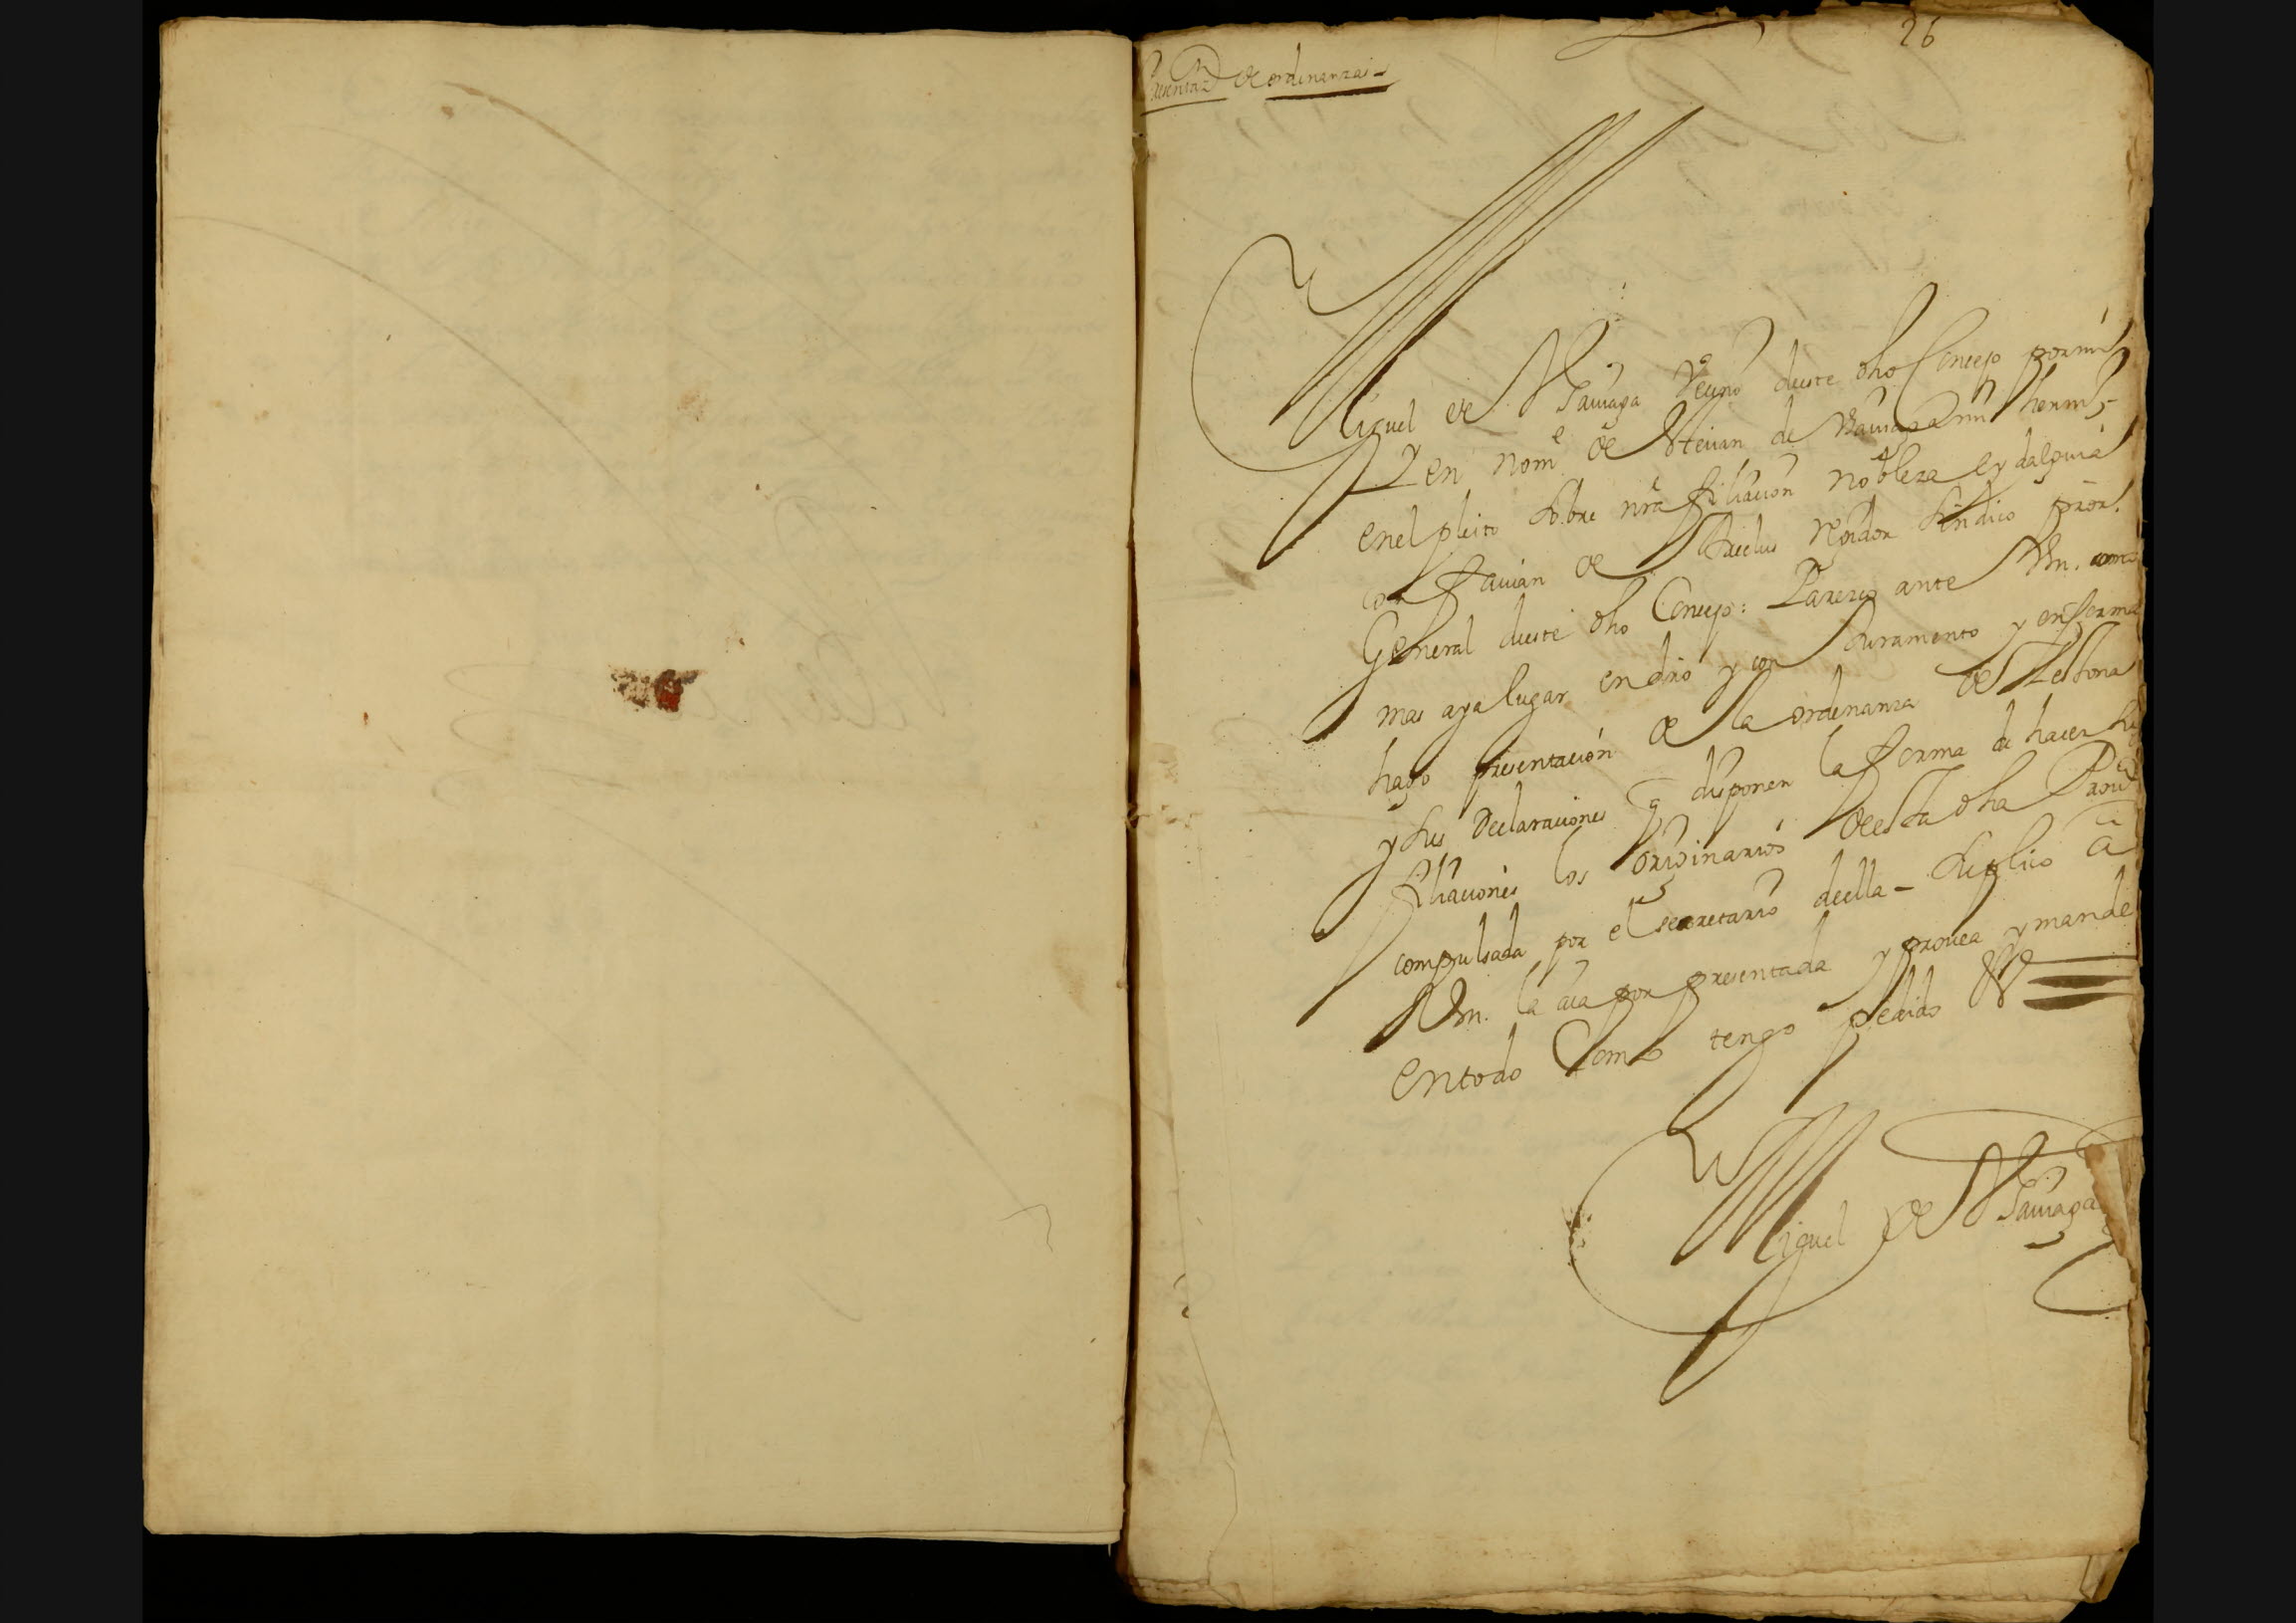 26
Presentaz.on de ordenanzas
Miguel de Yauiaga veçino deeste dho Conçejo por mi
y en nom.e de esteuan de Yauiaga mi herm.o
en el pleito sobre nra filiaçion nobleza e ydalguia
con fauian de rejidor sindico pror.
General deeste dho Conçejo: Parezco ante Vm. como
mas aya lugar en drō y con Juramento y en forma
hago presentaçion de la ordenanza de Zestona
y sus Declaraçiones q disponen la forma de hacer
filiaçiones los originarios deesta dha Prou.a
compulsada por el secretario deella - suplico a
Vm. la aia por presentada y prouea y mande
en todo Como tengo pedido &
Miguel de Yauiaga